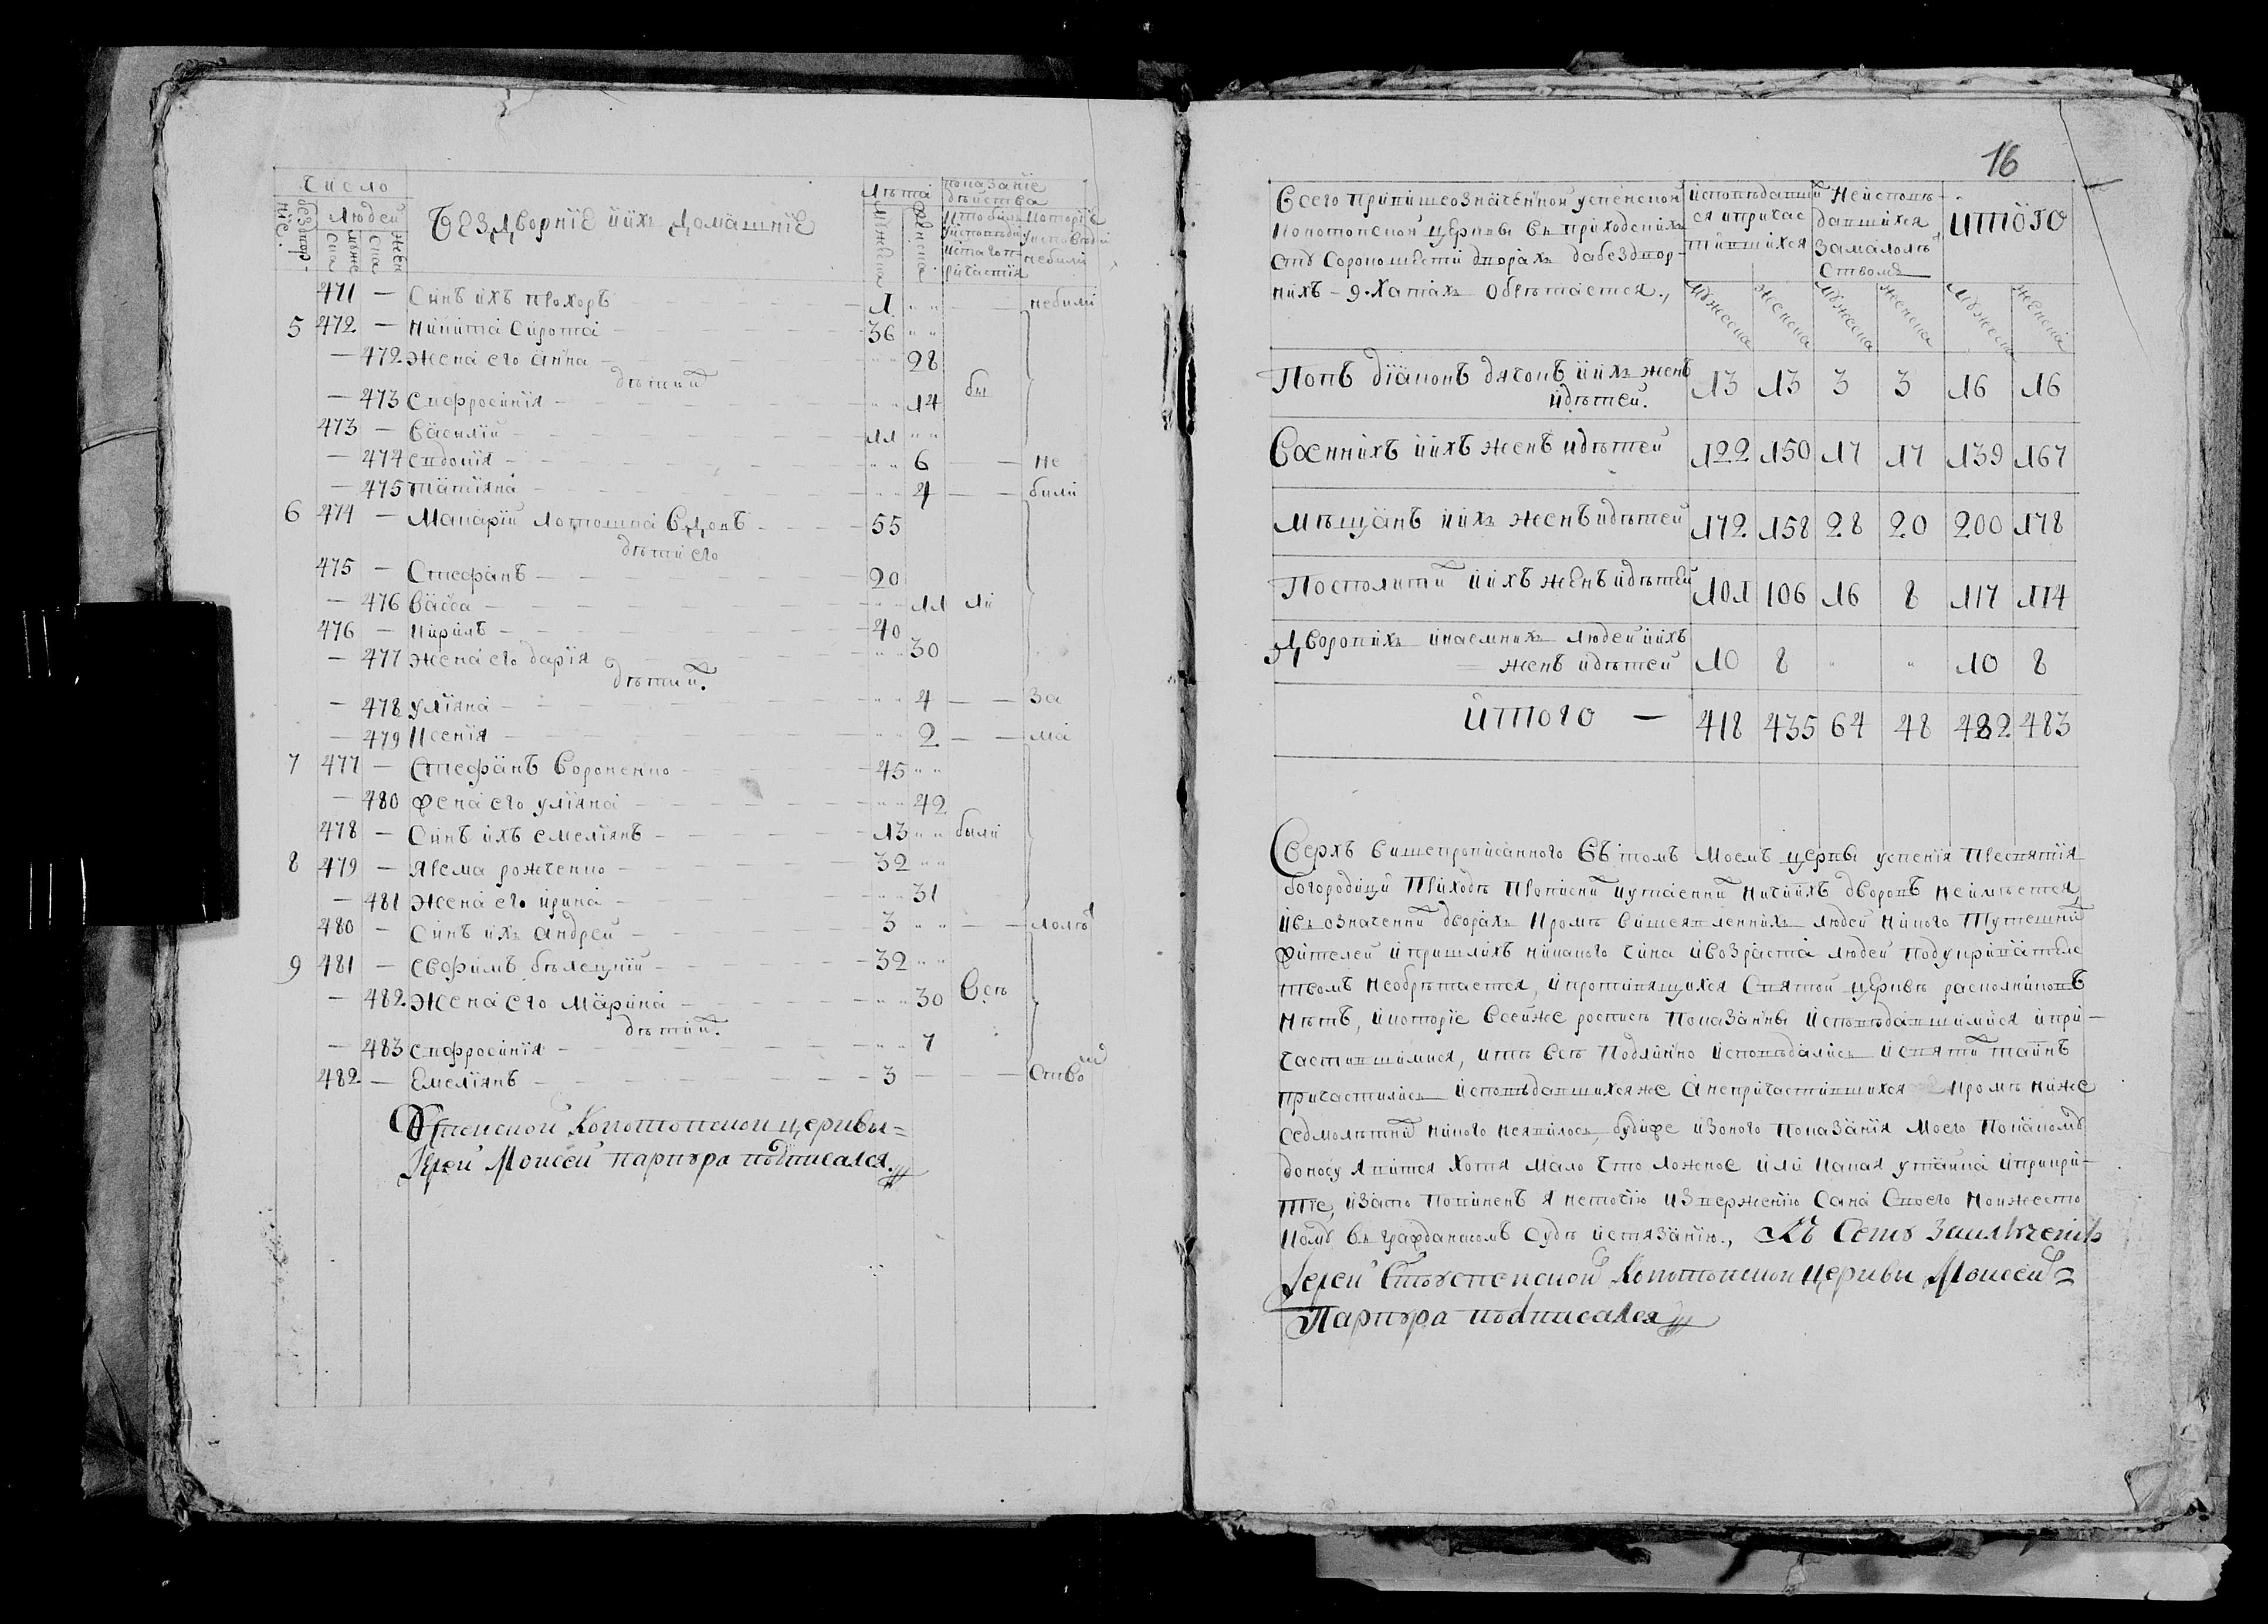 Число
Безднор-
ніе.
Людей
Муже
ска
Жен
ска
Бездворніе и ихъ домашніе
Лѣта
Мужеска
Женска
показаніе
дѣйства
471 — Синъ ихъ Прохоръ — 1 " " — небили
5 472 — Никита Сирота — 36 " "
— 472 Жена его Анна — " " 28
дѣти ихъ бы
— 473 Евфросинія — " " 14
473 — Василій — 11 " "
— 474 Евдокія — " " 6 — — не
— 475 Татіяна — " " 4 — — били
6 474 — Макарій Лотошка Вдовъ — 55
дѣти его
475 — Стефанъ — 20
— 476 Васса — " " 11 ли
476 — Кирилъ — 40
— 477 Жена его Дарія — " " 30
дѣти ихъ.
— 478 Уліяна — " " 4 — — за
— 479 Ксенія — " " 2 — — ма
7 477 — Стефанъ Вороненко — 45 " "
— 480 Жена его Уліяна — " " 42
478 — Синъ ихъ Емеліянъ — 13 " " были
8 479 — Ярема Рожченко — 32 " "
— 481 Жена его Ирина — " " 31
480 — Синъ ихъ Андрей — 3 " " — — лолѣт
9 481 — Евфимъ Бѣлецкій — 32 " "
— 482 Жена его Марина — " " 30 Всѣ
дѣти ихъ.
— 483 Евфросинія — " " 7
482 — Емеліянъ — 3 — — — ство
Успенской Конотопской церкви=
Іерей Моисей Парпура подписался.
16
Всего при вишеозначенной Успенской
Конотопской церкви въ приходскихъ
сту Сорокошести дворахъ да бездвор-
нихъ – 9. хатахъ обрѣтается.,
исповѣдавши
ся и причас
тившихся
Неисповѣ-
давшихся
за малолѣт
ством
итого
Мужеска Женска Мужеска Женска Мужеска Женска
Попъ діаконъ дячонъ и ихъ женъ
и дѣтей. 13 13 3 3 16 16
Военнихъ и ихъ женъ и дѣтей 122 150 17 17 139 167
Мѣщанъ и ихъ женъ и дѣтей 172 158 28 20 200 178
Посполити и ихъ женъ и дѣтей 101 106 16 8 117 114
Дворовихъ и наемнихъ людей и ихъ
женъ и дѣтей 10 8 " " 10 8
итого — 418 435 64 48 482 483
Сверхъ вишепрописанного въ томъ моемъ церкви успенія Пресвятія
Богородици приходѣ прописни и утаенни ничіихъ дворовъ неимѣется,
и въ означенни дворахъ кромѣ вишеявленнихъ людей никого тутешни
жителей и пришлихъ никакого чина и возраста людей подукривателс
твомъ необрѣтается, и противящихся Святой церкви расколниковъ
нѣтъ, и которіе в сей же росписѣ показанны исповѣдавшимися и при–
частившимися, и тѣ всѣ подлинно исповѣдались и святи таинъ
причастились исповѣдавшихся же а непричастившихся кромѣ ниже
седмолѣтни никого неявилось, будиже из оного показанія моего по какому
доносу явится хотя мало что ложное или какая утайка и прикри-
тіе, и зато повиненъ я неточію изверженію сана своего но и жесто
кому въ гражданскомъ судѣ истязанію., Къ Сему заключенію
Іерей Стоуспенской Конотопской Церкви Моисей=
Парпура подписался